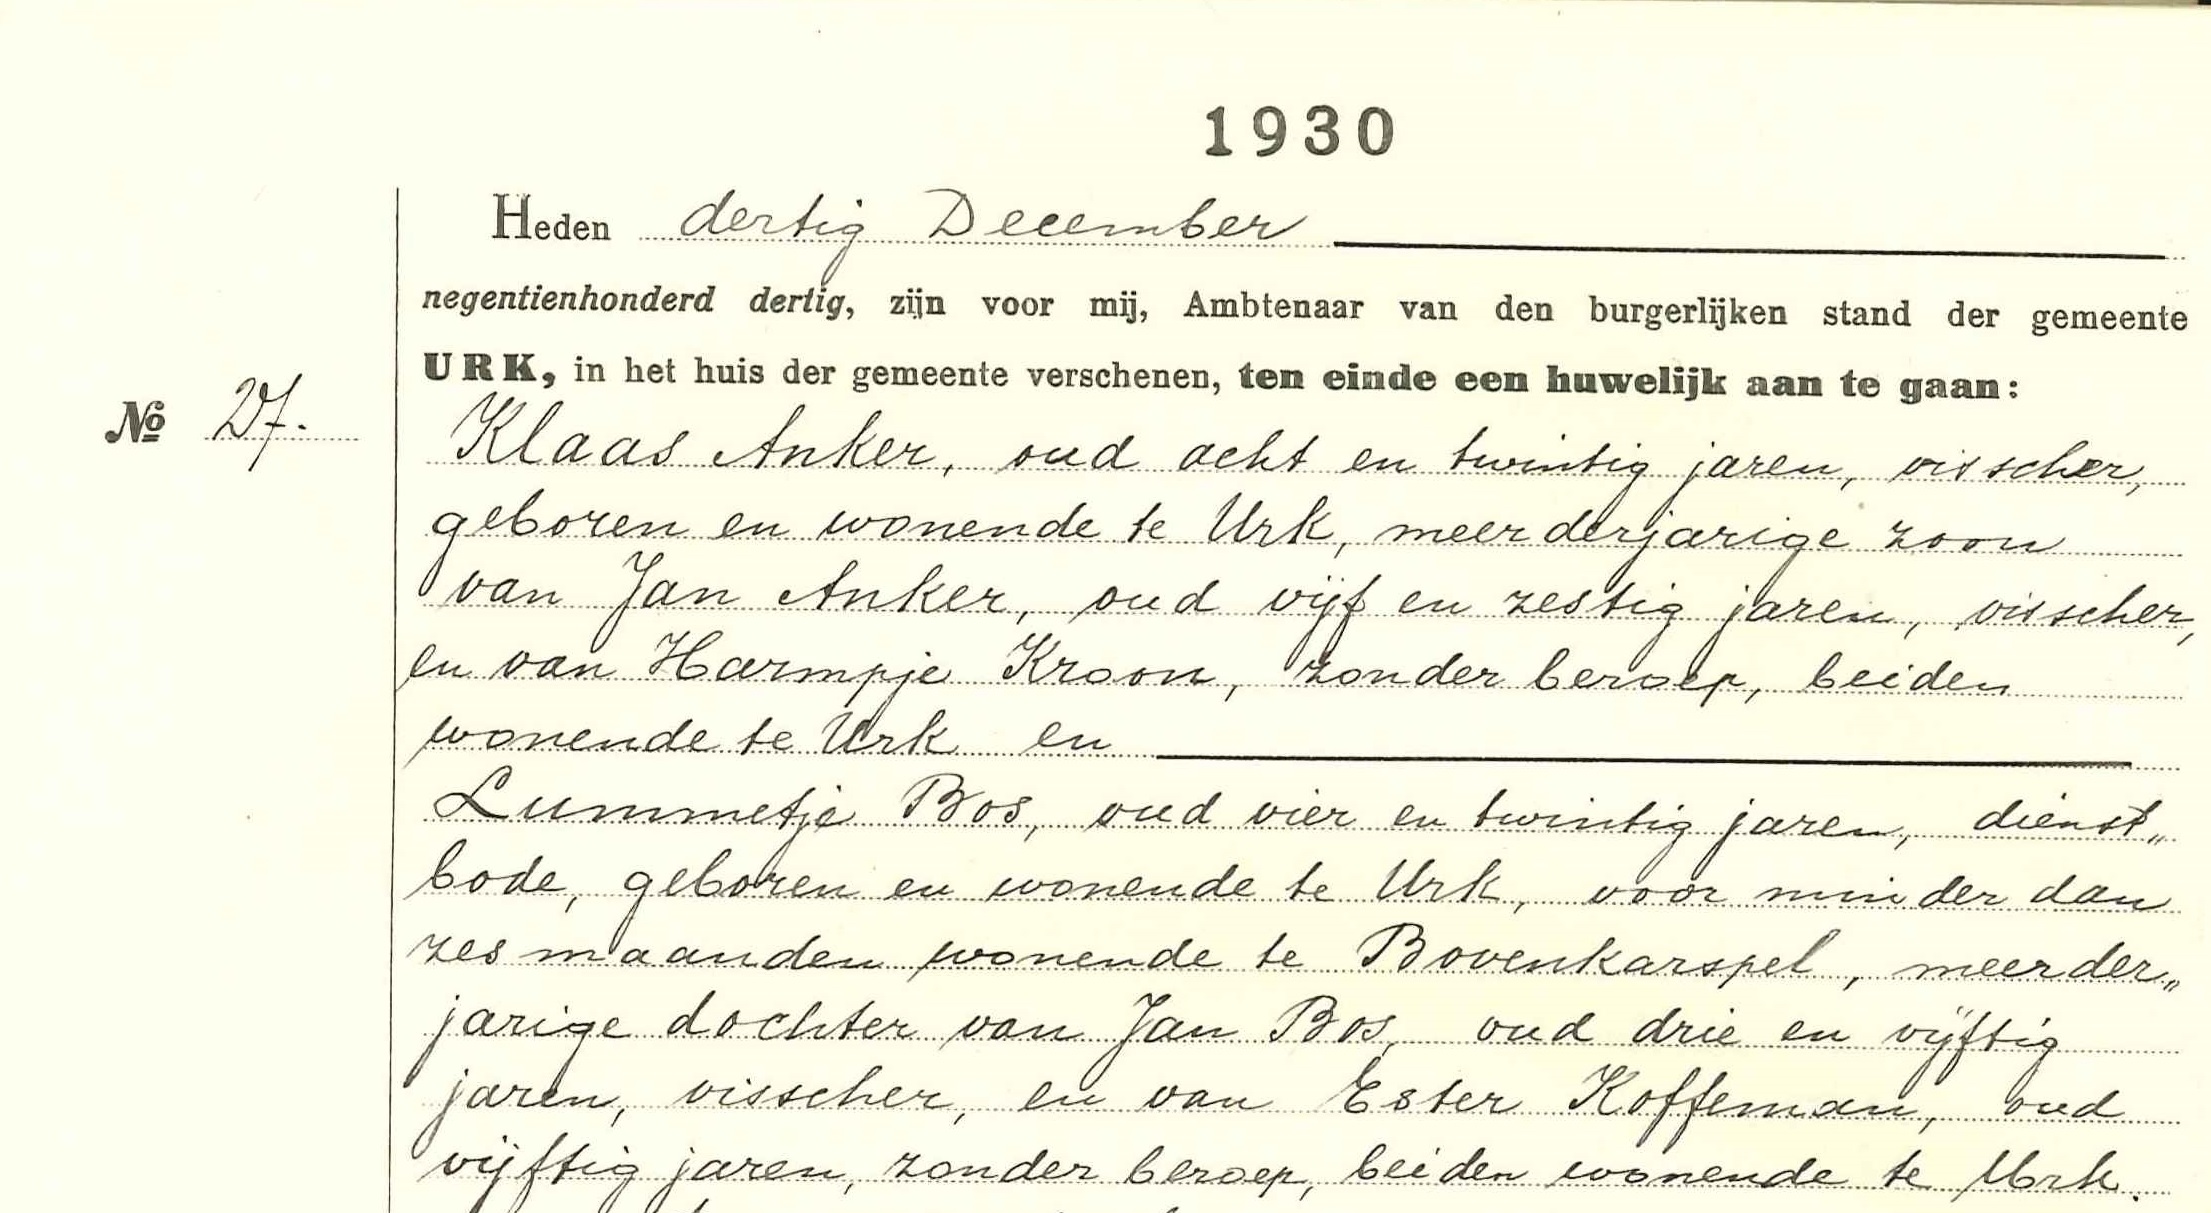 1930
Heden dertig December
negentienhonderd dertig, zijn voor mij, Ambtenaar van den burgerlijken stand der gemeente
URK, in het huis der gemeente verschenen, ten einde een huwelijk aan te gaan:
No 27.
Klaas Anker, oud acht en twintig jaren, visscher,
geboren en wonende te Urk, meerderjarige zoon
van Jan Anker, oud vijf en zestig jaren, visscher,
en van Harmpje Kroon, zonder beroep, beiden
wonende te Urk en
Lummetje Bos, oud vier en twintig jaren, dienst„
bode, geboren en wonende te Urk, voor minder dan
zes maanden wonende te Bovenkarspel, meerder„
jarige dochter van Jan Bos, oud drie en vijftig
jaren, visscher, en van Ester Koffeman, oud
vijftig jaren, zonder beroep, beiden wonende te Urk.